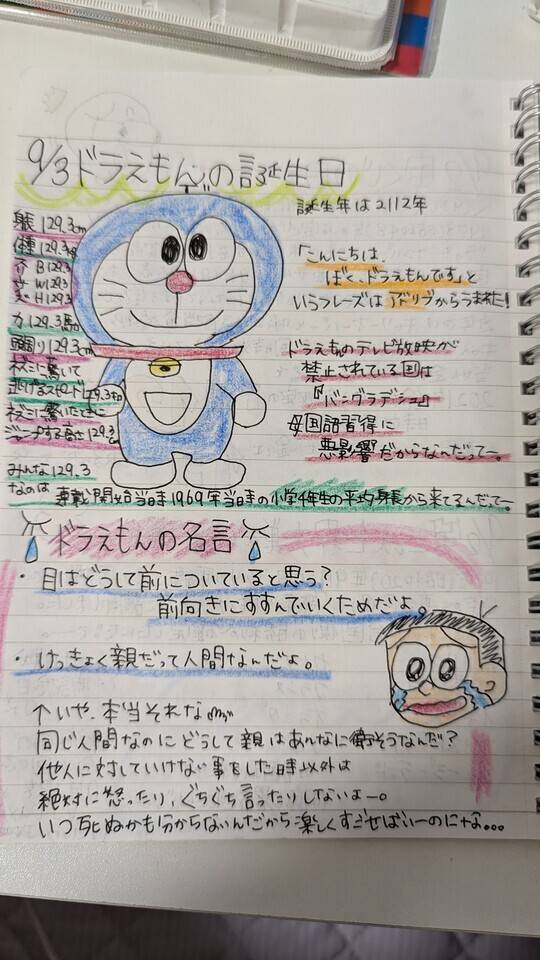 9/3ドラえもんの誕生日
誕生年は2112年
身長129.3cm
体重129.3kg
B129.3
W129.3
H129.3
力129.3馬力
頭周り129.3cm
ネズミに驚いて
逃げるスピード129.3km
ネズミに驚いたときに
ジャンプする高さ129.3cm
みんな129.3
なのは 連載開始当時1969年当時の小学4年生の平均身長から来てるんだってー。
「こんにちは、
ぼく、ドラえもんです」と
いうフレーズはアドリブからうまれた!
ドラえものテレビ放映が
禁止されている国は
『バングラデシュ』
母国語習得に
悪影響だからなんだってー。
ドラえもんの名言
・目はどうして前についていると思う?
前向きにすすんでいくためだよ。
・けっきょく親だって人間なんだよ。
↑いや、本当それな
同じ人間なのにどうして親はあんなに偉そうなんだ?
他人に対していけない事をした時以外は
絶対に怒ったり、ぐちぐち言ったりしないよー。
いつ死ぬかも分からないんだから楽しくすごせばいーのにな...